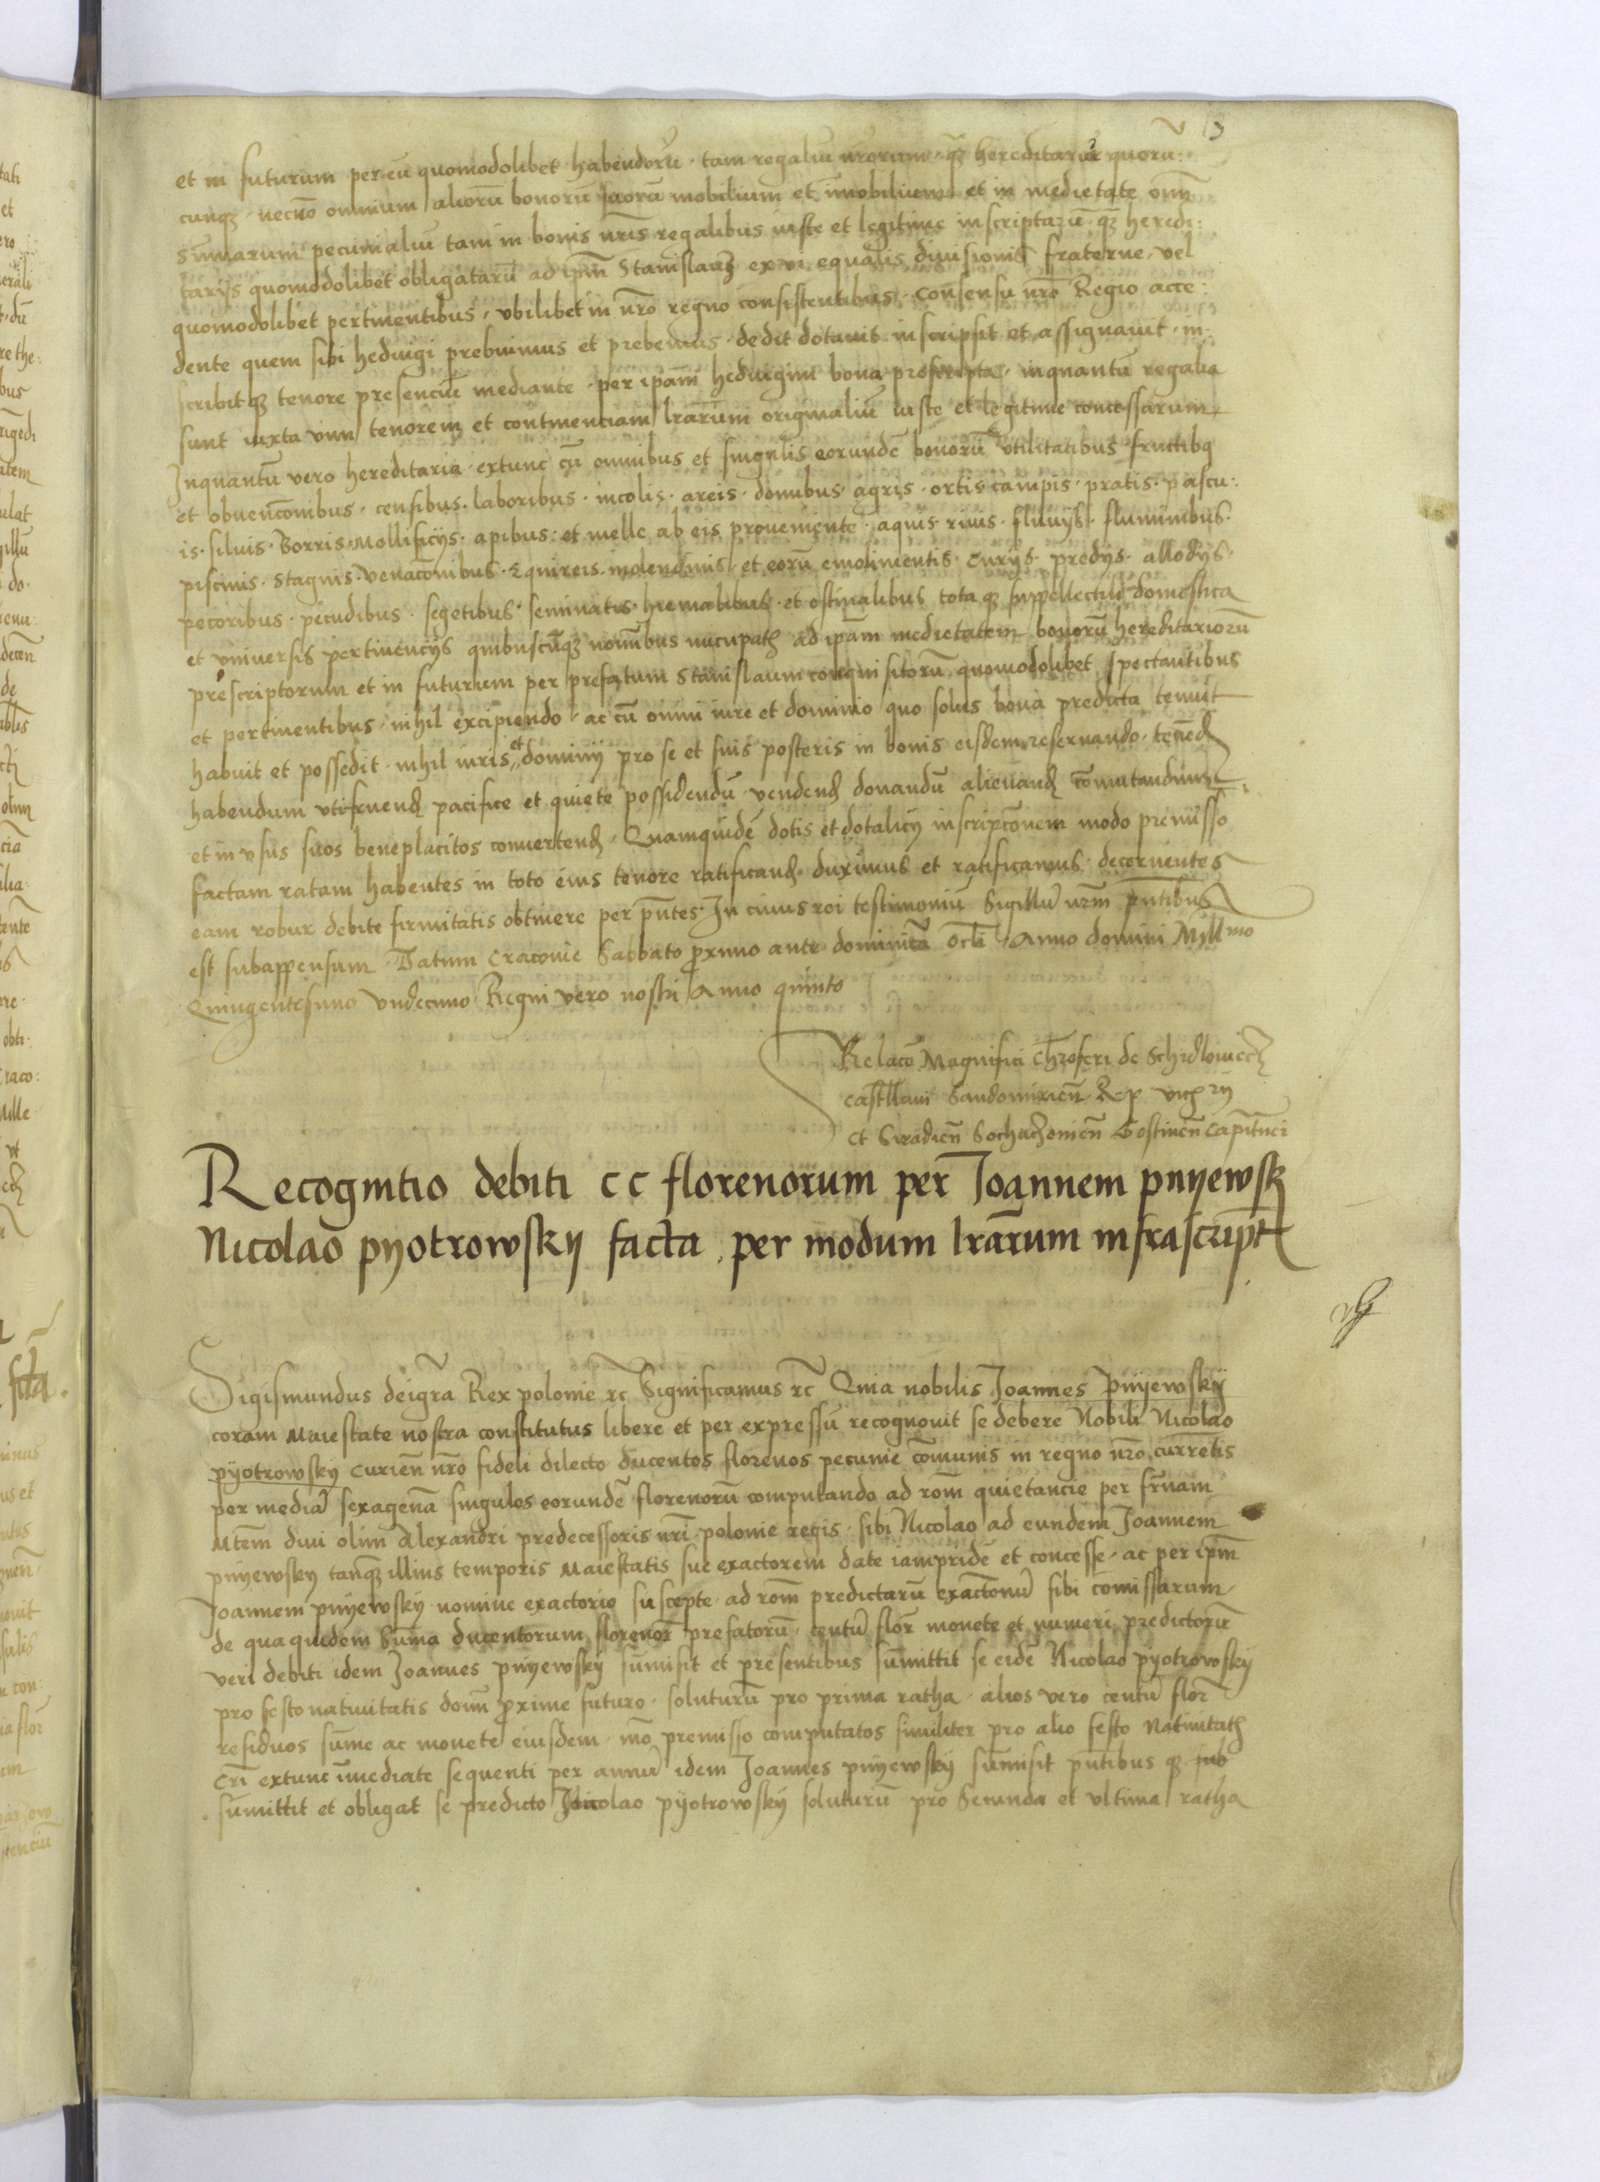 et in futurum per eū quomodolibet habendorū tam regaliū nrorum qʒ hereditariorū quorū:
cunqʒ necnō omnium aliorū bonorū suorū mobilium et īmobilium et in medietate oīm
sumarum pecunialiū tam in bonis nrīs regalibus iuste et legitime inscriptarū qʒ heredi:
tarijs quomodolibet obligatarū ad ipm̄ Stanislaū ex vi equalis diuisionis fraterne vel
quomodolibet pertinentibus, vbilibet in nrō regno consistentibus. Consensu nrō Regio acce:
dente quem sibi heduigi prebuimus et prebemus dedit dotauit inscripsit et assignauit in:
scribitqʒ tenore presenciū mediante per ipam̄ heduigim bona prescripta inquantū regalia
sunt iuxta vim tenorem et continenciam lrārum originaliū iuste et legitime concessarum
Inquantū vero hereditaria extunc cū omnibus et singulis eorundē bonorū vtilitatibus fructibꝫ
et obuencōnibus, censibus, laboribus, incolis, areis, domibus, agris, ortis campis, pratis, pascu:
is, siluis, Borris, Mellificijs, apibus et melle ab eis proueniente, aquis riuis, fluuijs, fluminibus,
piscinis, stagnis, venacōnibus, Equireis, molendinis et eorū emolimentis, Curijs, predijs, allodijs,
pecoribus, pecudibus, segetibus, seminatis hiemalibus et estiualibus totaqʒ suppellectile domestica
et vniuersis pertinencijs quibuscūqʒ noībus nūcupatis ad ipam̄ medietatem bonorū hereditariorū
prescriptorum et in futurum per prefatum Stanislaum conquisitorū quomodolibet spectantibus
et pertinentibus, nihil excipiendo, ac cū omni iure et dominio quo solus bona predicta tenuit
habuit et possedit, nihil iuris et dominij pro se et suis posteris in bonis eisdem reseruando, tenēd
habendum vtifruend pacifice et quiete possidendū vendend donandū alienand cōmutandum
et in vsus suos beneplacitos conuertend, Quamquidē dotis et dotalicij inscripcōnem modo premisso
factam ratam habentes in toto eius tenore ratificand duximus et ratificamus decernentes
eam robur debite firmitatis obtinere per pn̄tes. In cuius rei testimoniū Sigillū nrm̄ pn̄tibus
est subappensum. Datum Cracouie Sabbato proximo ante dominicā Oculi Anno domini Millmo
Quingentesimo vndecimo Regni vero nostri Anno quinto
Relacō Magnifici Chrzoferi de Schidlowiecz
Castellani Sandomirien̄ R p vicz rij
et Siradien̄ Sochaczouien̄ Gostinen̄ Capitanei
Recognitio debiti CC florenorum per Joannem pnyewsky
Nicolao pyotrowsky facta per modum lrārum infrascript
Sigismundus dei grā Rex polonie rc Significamus rc Quia nobilis Joannes Pnyewsky
coram Maiestate nostra constitutus libere et per expressū recognouit se debere Nobili Nicolao
pyotrowsky Curien̄ nrō fideli dilecto ducentos florenos pecunie cōmunis in regno nrō currētis
per mediā sexagenā singulos eorundē florenorū computando ad rōm quietancie per srn̄am
Mtēm diui olim Alexandri predecessoris nrī polonie regis sibi Nicolao ad eundem Joannem
pnyewsky tanqʒ illius temporis Maiestatis sue exactorem date iampridē et concesse ac per ipm̄
Joannem pnyewsky nomine exactorio suscepte ad rōm predictarū exactionū sibi cōmissarum
de qua quidem Suma ducentorum florenor prefatorū, centū flor monete et numeri predictorū
veri debiti idem Joannes pnyewsky sūmisit et presentibus sūmittit se eidē Nicolao pyotrowsky
pro festo natiuitatis domī proxime futuro soluturū pro prima ratha, alios vero centū flor
residuos sume ac monete eiusdem mō premisso computatos similiter pro alio festo Natiuitatis
Cri extunc īmediate sequenti per annū idem Joannes pnyewsky sūmisit pn̄tibus qʒ
sūmittit et obligat se predicto Nicolao pyotrowsky soluturū pro Secunda et vltima ratha